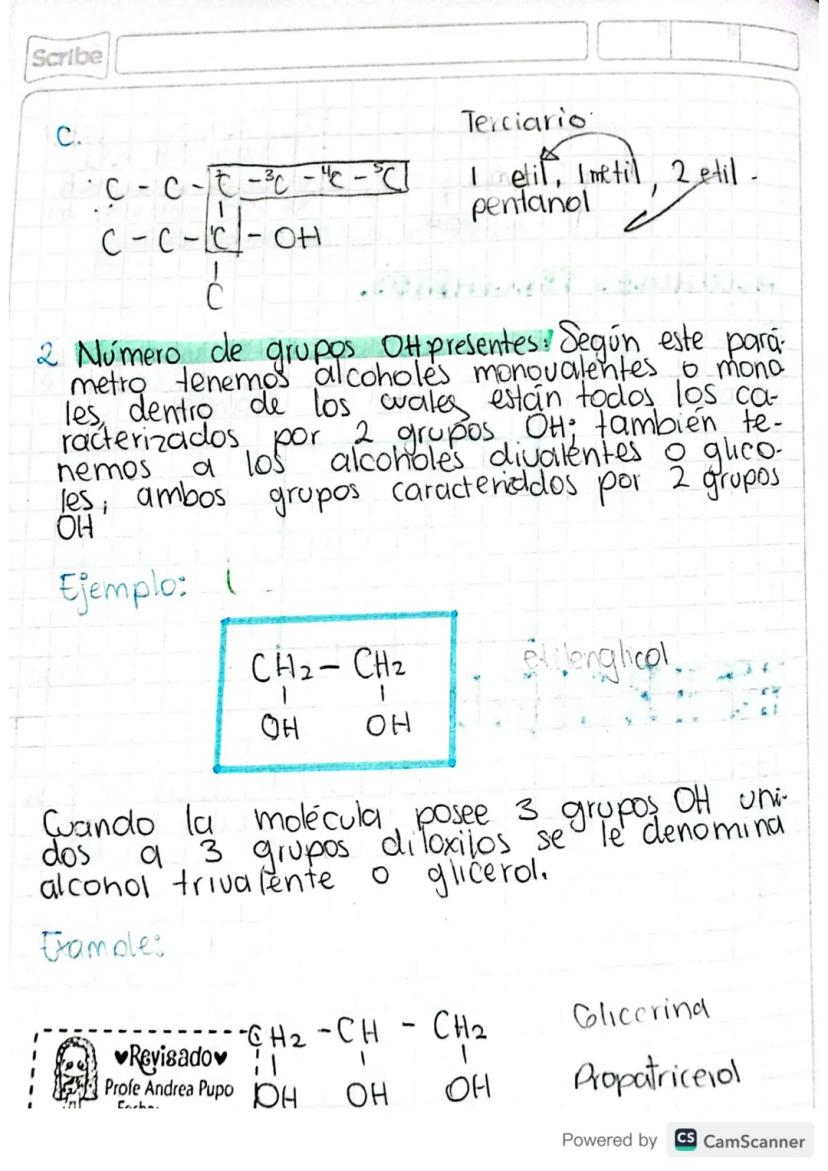 Scribe
C.
Terciario
C - C - ²C - ³C - ⁴C - ⁵C
1 etil, 1 metil, 2 etil -
pentanol
C - C - ¹C - OH
C
2 Número de grupos OH presentes: Según este pará-
metro tenemos alcoholes monovalentes o mono
les, dentro de los cuales están todos los ca-
racterizados por 2 grupos OH; también te-
nemos a los alcoholes divalentes o glico-
les; ambos grupos por 2 grupos
OH
Ejemplo:
CH2 - CH2
etilenglicol
OH OH
Cuando la molécula posee 3 grupos OH uni-
dos a 3 grupos diloxilos se le denomina
alcohol trivalente o glicerol.
Example:
CH2 - CH - CH2
Glicerina
♥Revisado♥
Profe Andrea Pupo
OH OH OH
Propatricerol
Powered by CS CamScanner